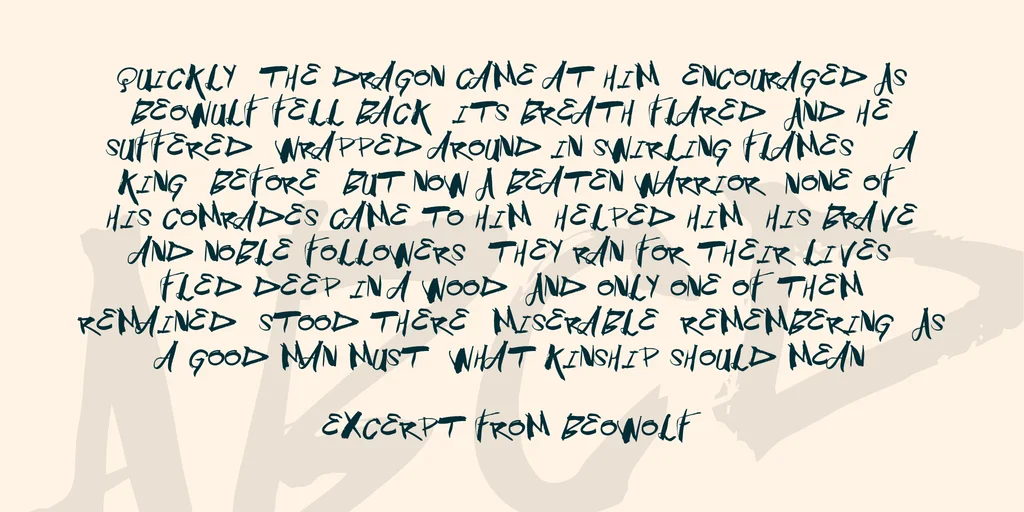 QUICKLY THE DRAGON CAME AT HIM ENCOURAGED AS
BEOWULF FELL BACK ITS BREATH FLARED AND HE
SUFFERED WRAPPED AROUND IN SWIRLING FLAMES A
KING BEFORE BUT NOW A BEATEN WARRIOR NONE OF
HIS COMRADES CAME TO HIM HELPED HIM HIS BRAVE
AND NOBLE FOLLOWERS THEY RAN FOR THEIR LIVES
FLED DEEP IN A WOOD AND ONLY ONE OF THEM
REMAINED STOOD THERE MISERABLE REMEMBERING AS
A GOOD MAN MUST WHAT KINSHIP SHOULD MEAN
EXCERPT FROM BEOWOLF
ABCD